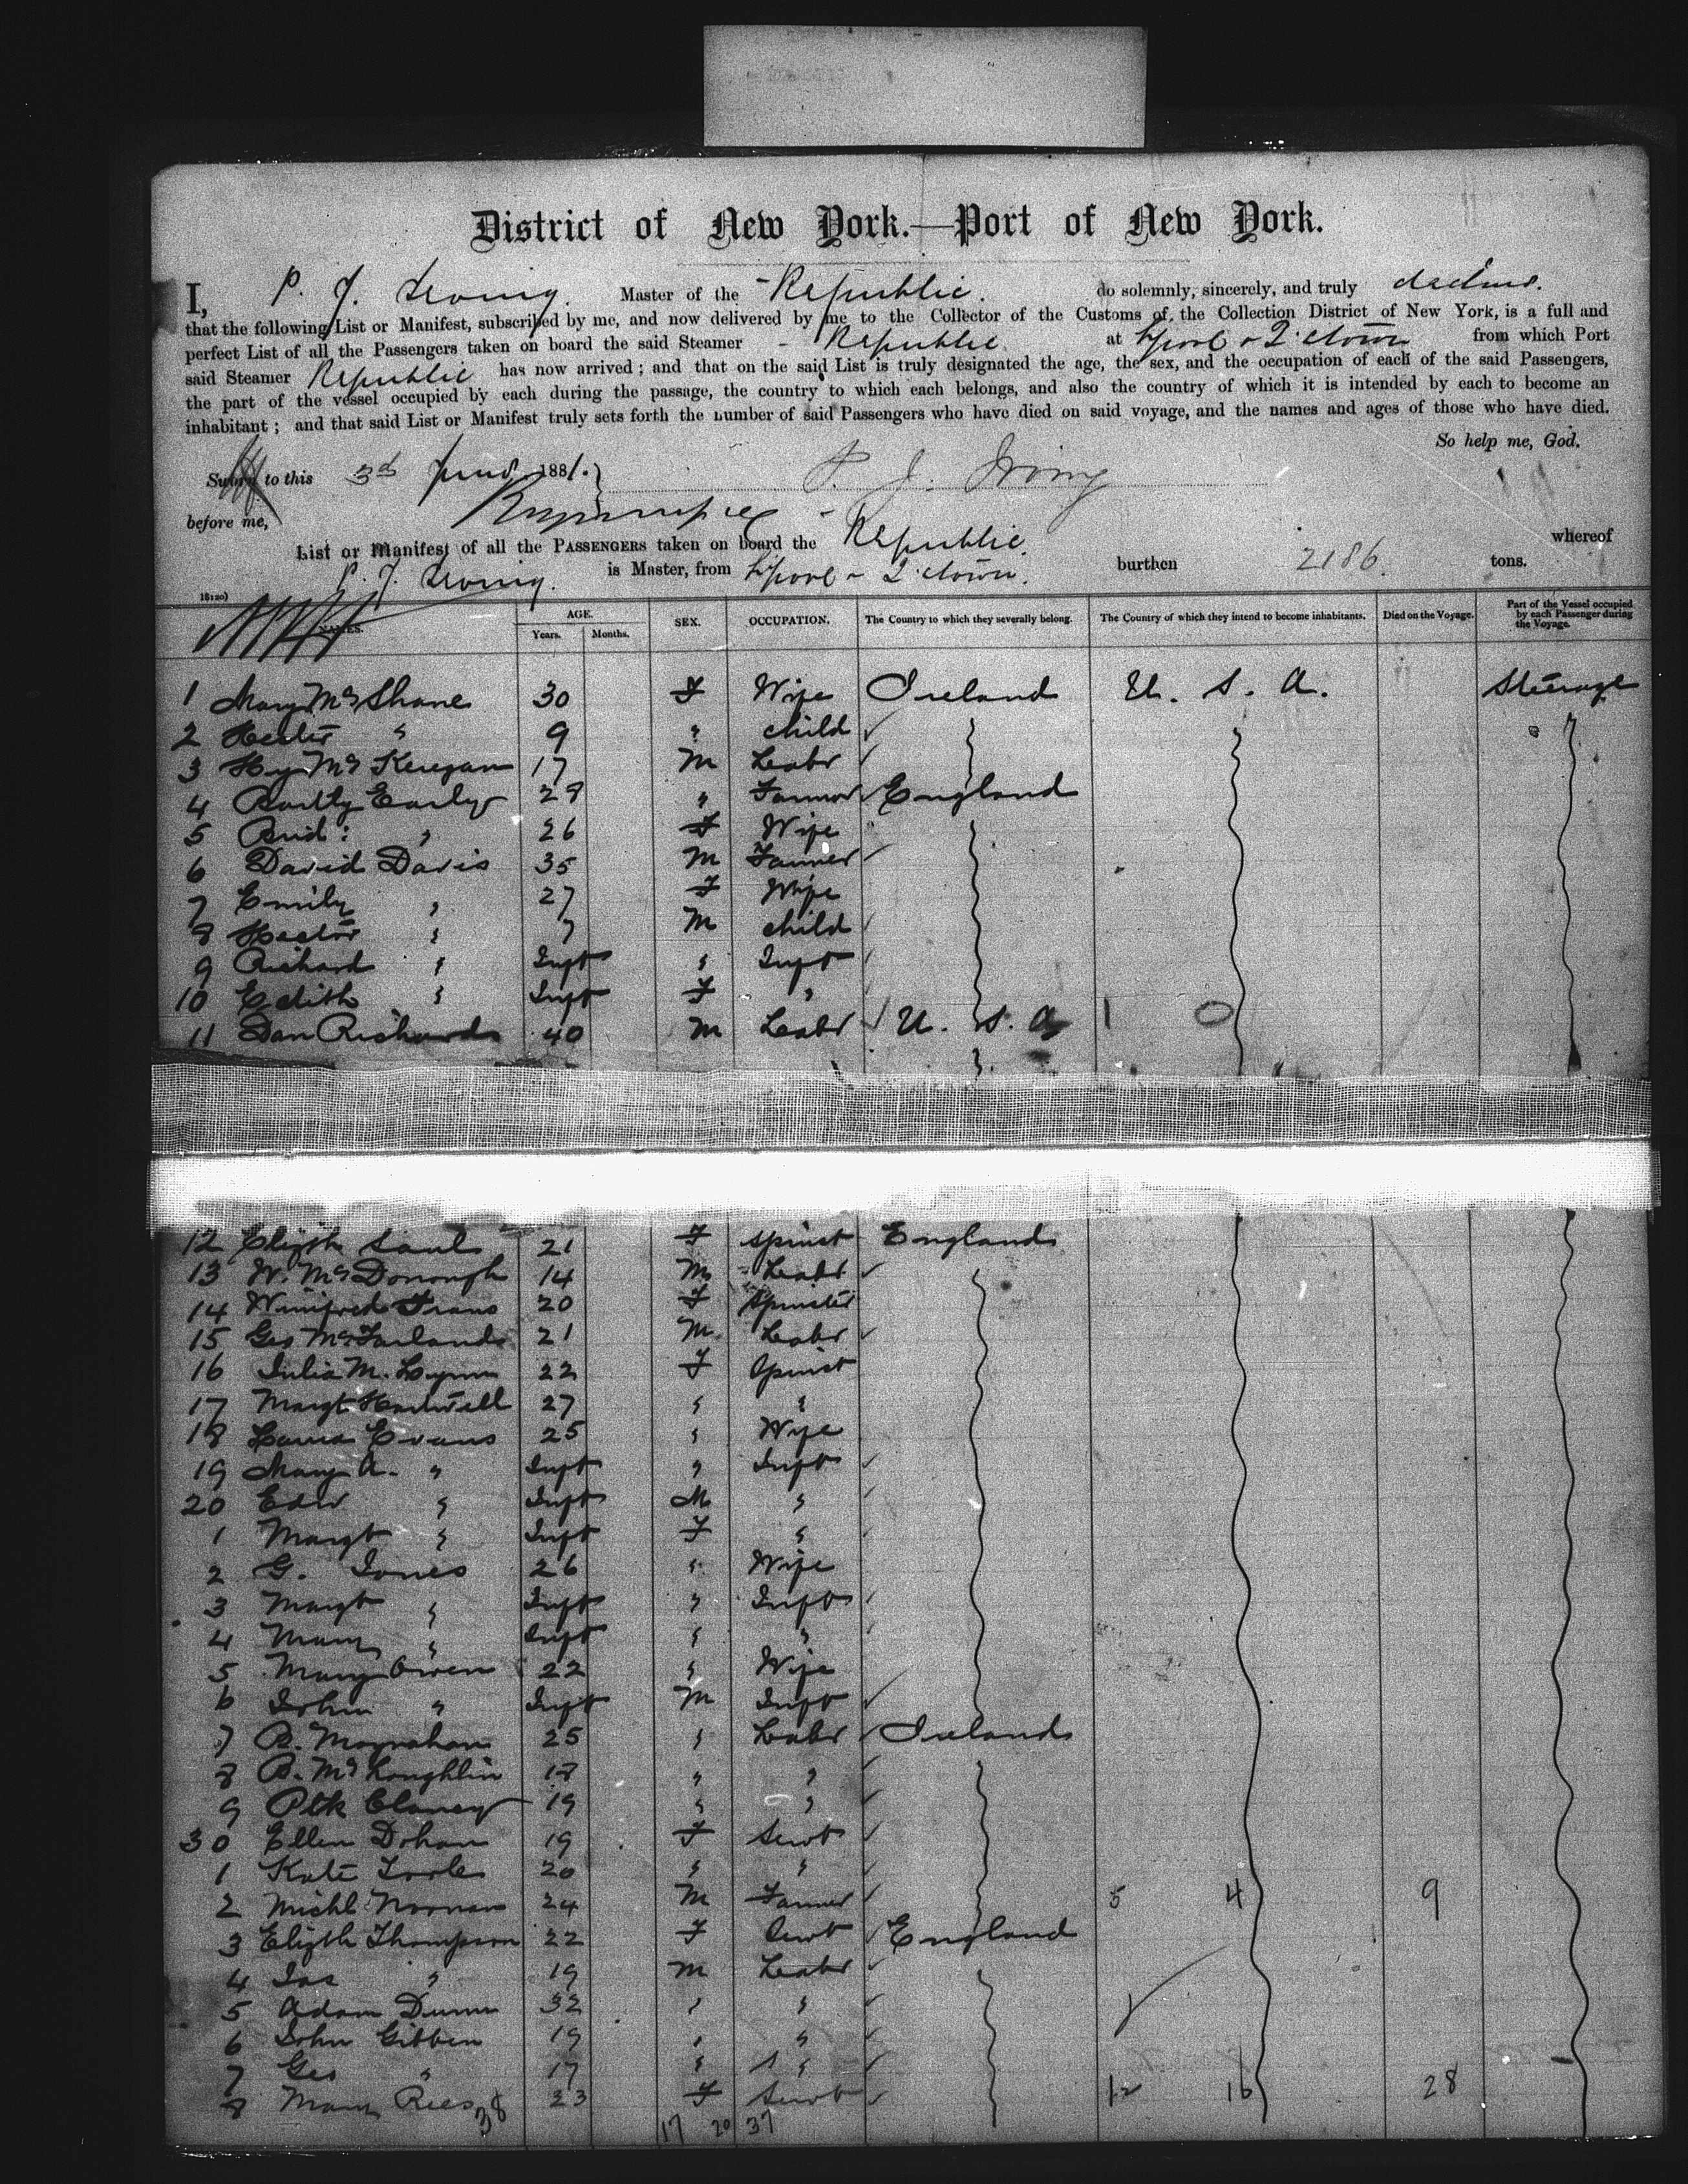 District of New York.—Port of New York.
I, P. J. Irving. Master of the Republic. do solemnly, sincerely, and truly declare.
that the following List or Manifest, subscribed by me, and now delivered by me to the Collector of the Customs of the Collection District of New York, is a full and
perfect List of all the Passengers taken on board the said Steamer - Republic at L'pool & Q'town from which Port
said Steamer Republic has now arrived; and that on the said List is truly designated the age, the sex, and the occupation of each of the said Passengers,
the part of the vessel occupied by each during the passage, the country to which each belongs, and also the country of which it is intended by each to become an
inhabitant; and that said List or Manifest truly sets forth the number of said Passengers who have died on said voyage, and the names and ages of those who have died.
So help me, God.
Sworn to this 3d June 1881. P. J. Irving
before me,
List or Manifest of all the PASSENGERS taken on board the Republic. whereof
P. J. Irving. is Master, from L'pool & Q'town. burthen 2186. tons.
NAMES. AGE. Years. Months. SEX. OCCUPATION. The Country to which they severally belong. The Country of which they intend to become inhabitants. Died on the Voyage. Part of the Vessel occupied by each Passenger during the Voyage.
1 Mary McShane 30 F Wife Ireland U. S. A. Steerage
2 Hester " 9 " child
3 Hy McKeegan 17 M Labr
4 Bartly Early 28 " Farmer England
5 Brid: " 26 F Wife
6 David Davis 35 M Farmer
7 Emily " 27 F Wife
8 Hector " 7 M child
9 Richard " Inft " Inft
10 Edith " Inft F "
11 Dan Richards 40 M Labr U. S. A 1 0
12 Elizth Saul 21 F Spinst England
13 W. McDonough 14 M Labr
14 Winifred 20 F Spinster
15 Geo McFarland 21 M Labr
16 Julia M. Lynn 22 F Spinst
17 Margt Hartwell 27 " "
18 Laura Evans 25 " Wife
19 Mary A. " Inft " Inft
20 Edw " Inft M "
1 Margt " Inft F "
2 G. Jones 26 " Wife
3 Margt " Inft " Inft
4 Mary " Inft " "
5 Mary Owen 22 " Wife
6 John " Inft M Inft
7 B. Moynahan 25 " Labr Ireland
8 B. McLoughlin 18 " "
9 Patk Clancy 19 " "
30 Ellen Dohan 19 F Servt
1 Kate Toole 20 " "
2 Michl Noonan 24 M Farmer 5 4 9
3 Elizth Thompson 22 F Servt England
4 Jas " 19 M Labr
5 Adam Dunn 32 " "
6 John Gibben 19 " "
7 Geo " 17 " "
8 Mary Rees 23 F Servt 12 16 28
38 17 20 37